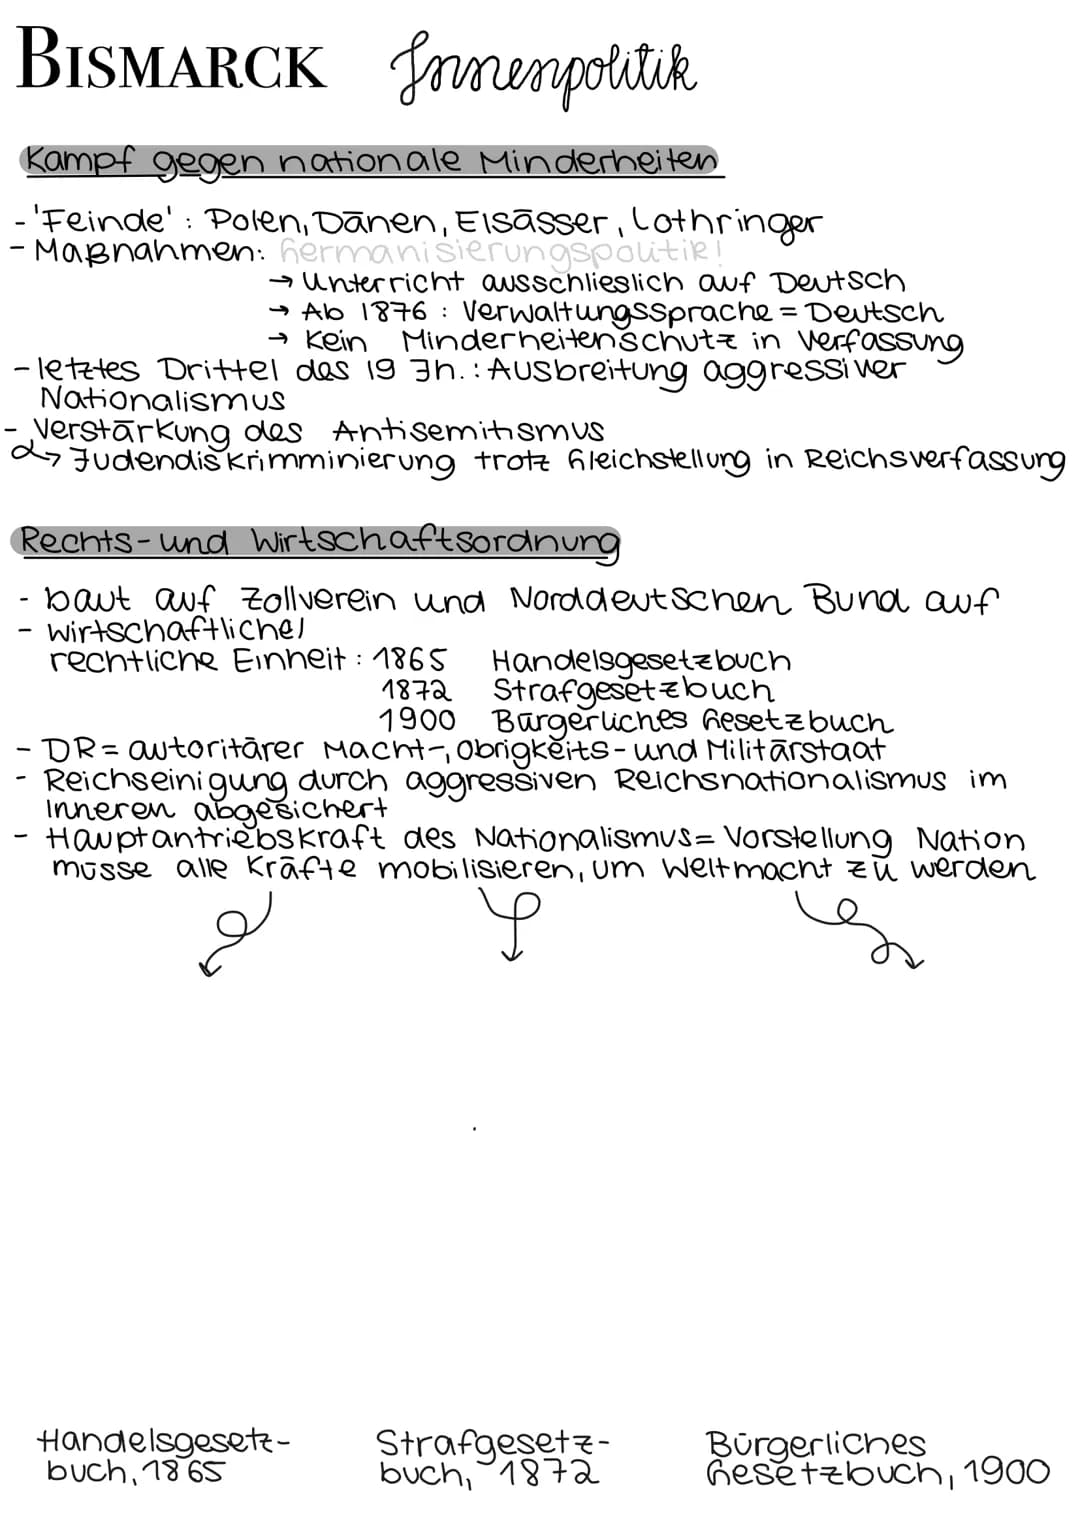 BISMARCK Innenpolitik
Kampf gegen nationale Minderheiten
- 'Feinde' : Polen, Dänen, Elsässer, Lothringer
- Maßnahmen: Germanisierungspolitik!
→ Unterricht ausschlieslich auf Deutsch
→ Ab 1876 : Verwaltungssprache = Deutsch
→ Kein Minderheitenschutz in Verfassung
- letztes Drittel des 19 Jh. : Ausbreitung aggressiver
Nationalismus
- Verstärkung des Antisemitismus
↳ Judendiskrimminierung trotz Gleichstellung in Reichsverfassung
Rechts- und Wirtschaftsordnung
- baut auf Zollverein und Norddeutschen Bund auf
- wirtschaftliche/
rechtliche Einheit : 1865 Handelsgesetzbuch
1872 Strafgesetzbuch
1900 Bürgerliches Gesetzbuch
- DR = autoritärer Macht-, Obrigkeits- und Militärstaat
- Reichseinigung durch aggressiven Reichsnationalismus im
Inneren abgesichert
- Hauptantriebskraft des Nationalismus = Vorstellung Nation
müsse alle Kräfte mobilisieren, um Weltmacht zu werden
Handelsgesetz-
buch, 1865
Strafgesetz-
buch, 1872
Bürgerliches
Gesetzbuch, 1900